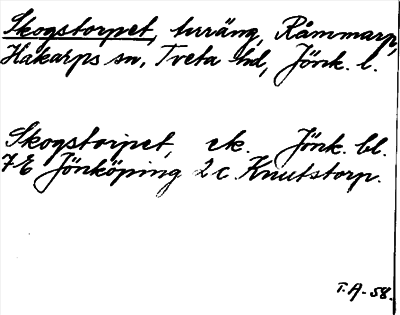 Skogstorpet, terräng, Råmmarp,
Hakarps sn, Tveta hd, Jönk. l.
Skogstorpet, ek. Jönk. bl.
7E Jönköping 2c. Knutstorp.
T.A-58.